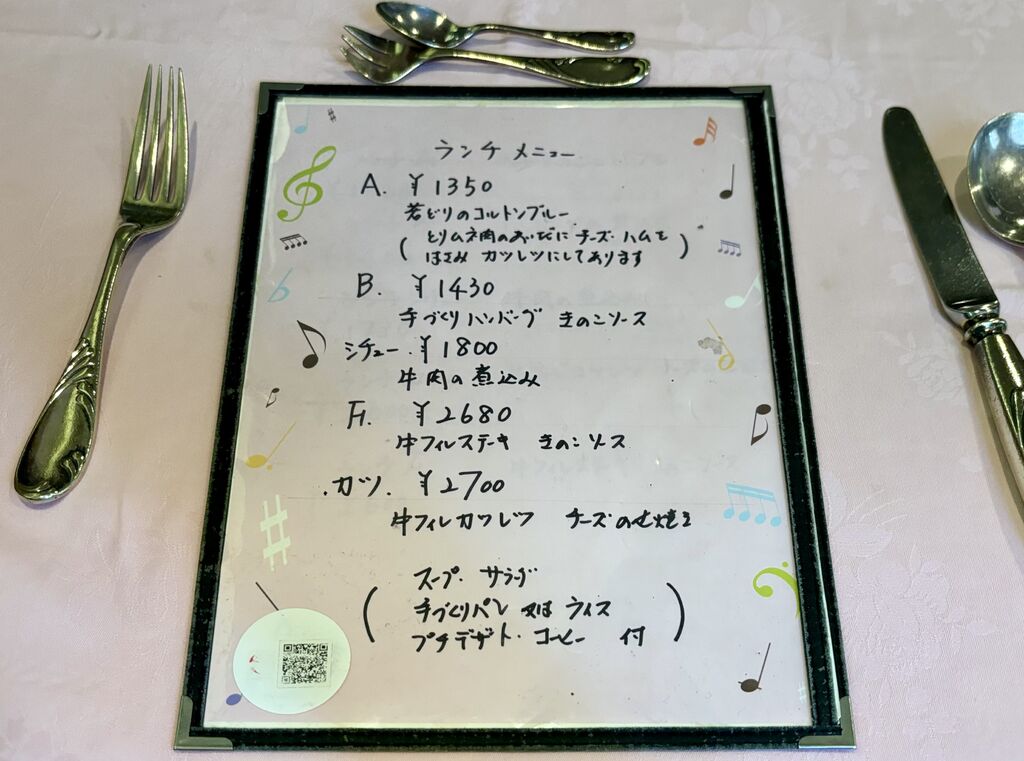 ランチ メニュー
A. ¥1350
若どりのコルトンブルー
(とりムネ肉のあいだに チーズ・ハムを
はさみ カツレツにしてあります)
B. ¥1430
手づくりハンバーグ きのこソース
シチュー. ¥1800
牛肉の煮込み
¥2680
牛フィレステーキ きのこソース
.カツ. ¥2700
牛フィレカツレツ チーズのせ焼き
(スープ・サラダ
手づくりパン 又は ライス
プチデザート・コーヒー 付)